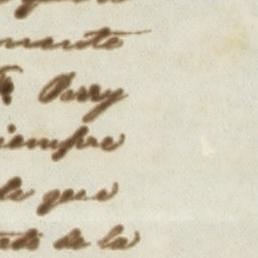 mente
Perry
iempre
le que
de la